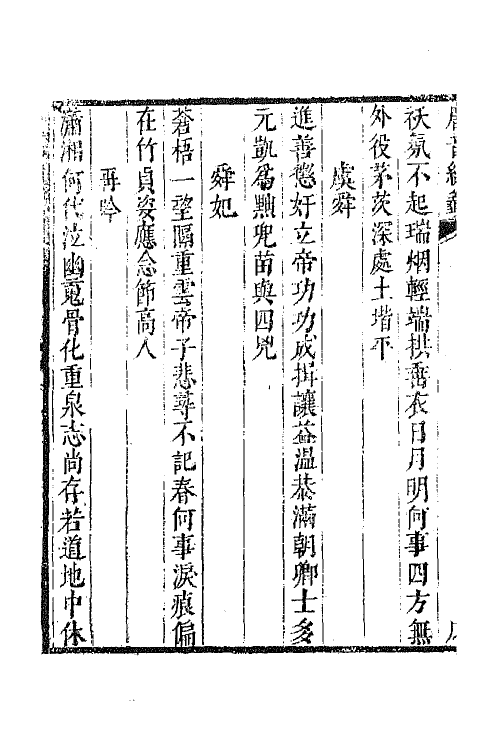 祅氛不起瑞烟輕端拱垂衣日月明何事四方無
外役茅茨深處土堦平
虞舜
進善懲奸立帝功功成揖讓益溫恭滿朝卿士多
元凱爲黜兜苗與四兇
舜妃
蒼梧一望隔重雲帝子悲尋不記春何事淚痕偏
在竹貞姿應念節高人
再吟
瀟湘何代泣幽䰟骨化重泉志尚存若道地中休